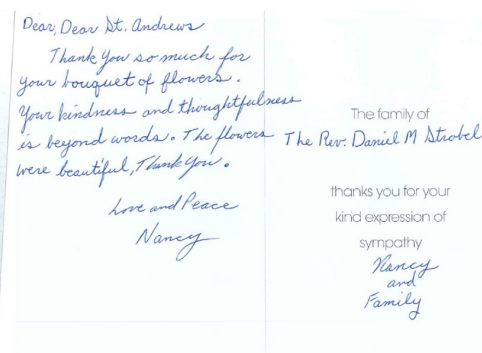 Dear, Dear St. Andrews
Thank You so much for
your bouquet of flowers.
Your kindness and thoughtfulness
is beyond words. The flowers
were beautiful, Thank You.
Love and Peace
Nancy
The family of
The Rev. Daniel M Strobel
thanks you for your
kind expression of
sympathy
Nancy
and
Family